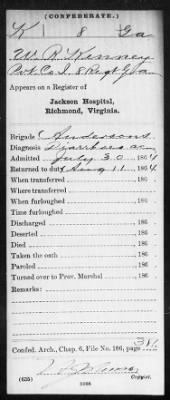 (CONFEDERATE.)
K 8 Ga
W. R. Kinney
Pvt Co. I, 8 Regt Ga
Appears on a Register of
Jackson Hospital,
Richmond, Virginia.
Brigade Andersons
Diagnosis Diarrhoea ac
Admitted July 30 1864
Returned to duty Aug 11 1864
When transferred 186
Where transferred
When furloughed 186
Time furloughed
Discharged 186
Deserted 186
Died 186
Taken the oath 186
Paroled 186
Turned over to Prov. Marshal 186
Remarks:
Confed. Arch., Chap. 6, File No. 166, page
(635)
Copyist.